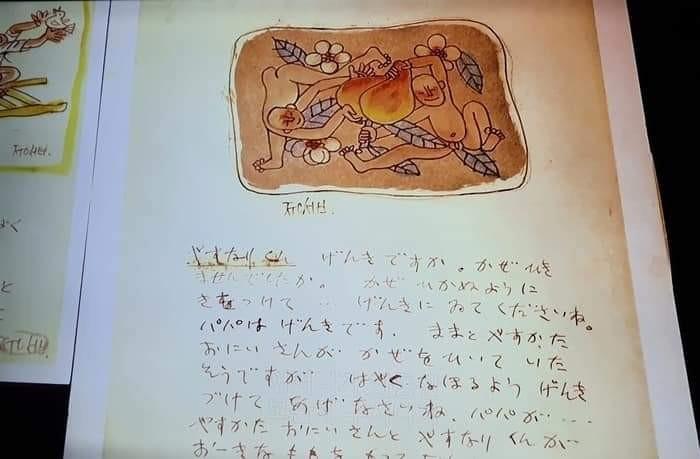 ㅈㅜㅇㅅㅓㅂ
やすなりくん げんきですか。かぜひき
ませんでしたか。 かぜ ひかぬように
きをつけて… げんきに ゐてくださいね。
パパは げんきです. ままと やすかた
おにいさんが かぜをひいて いた
そうですが はやく なほるよう げんき
づけて あげなさいね. パパが....
やすかた おにいさんと やすなり くんが